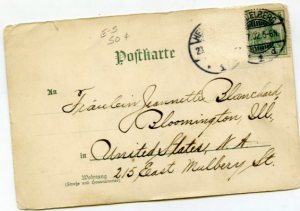 E-S
50¢
Postkarte
An
Fräulein Jeannette Blanchard,
Bloomington, Ill.
in United States, N A
Wohnung
(Straße und Hausnummer)
215 East Mulbery St.